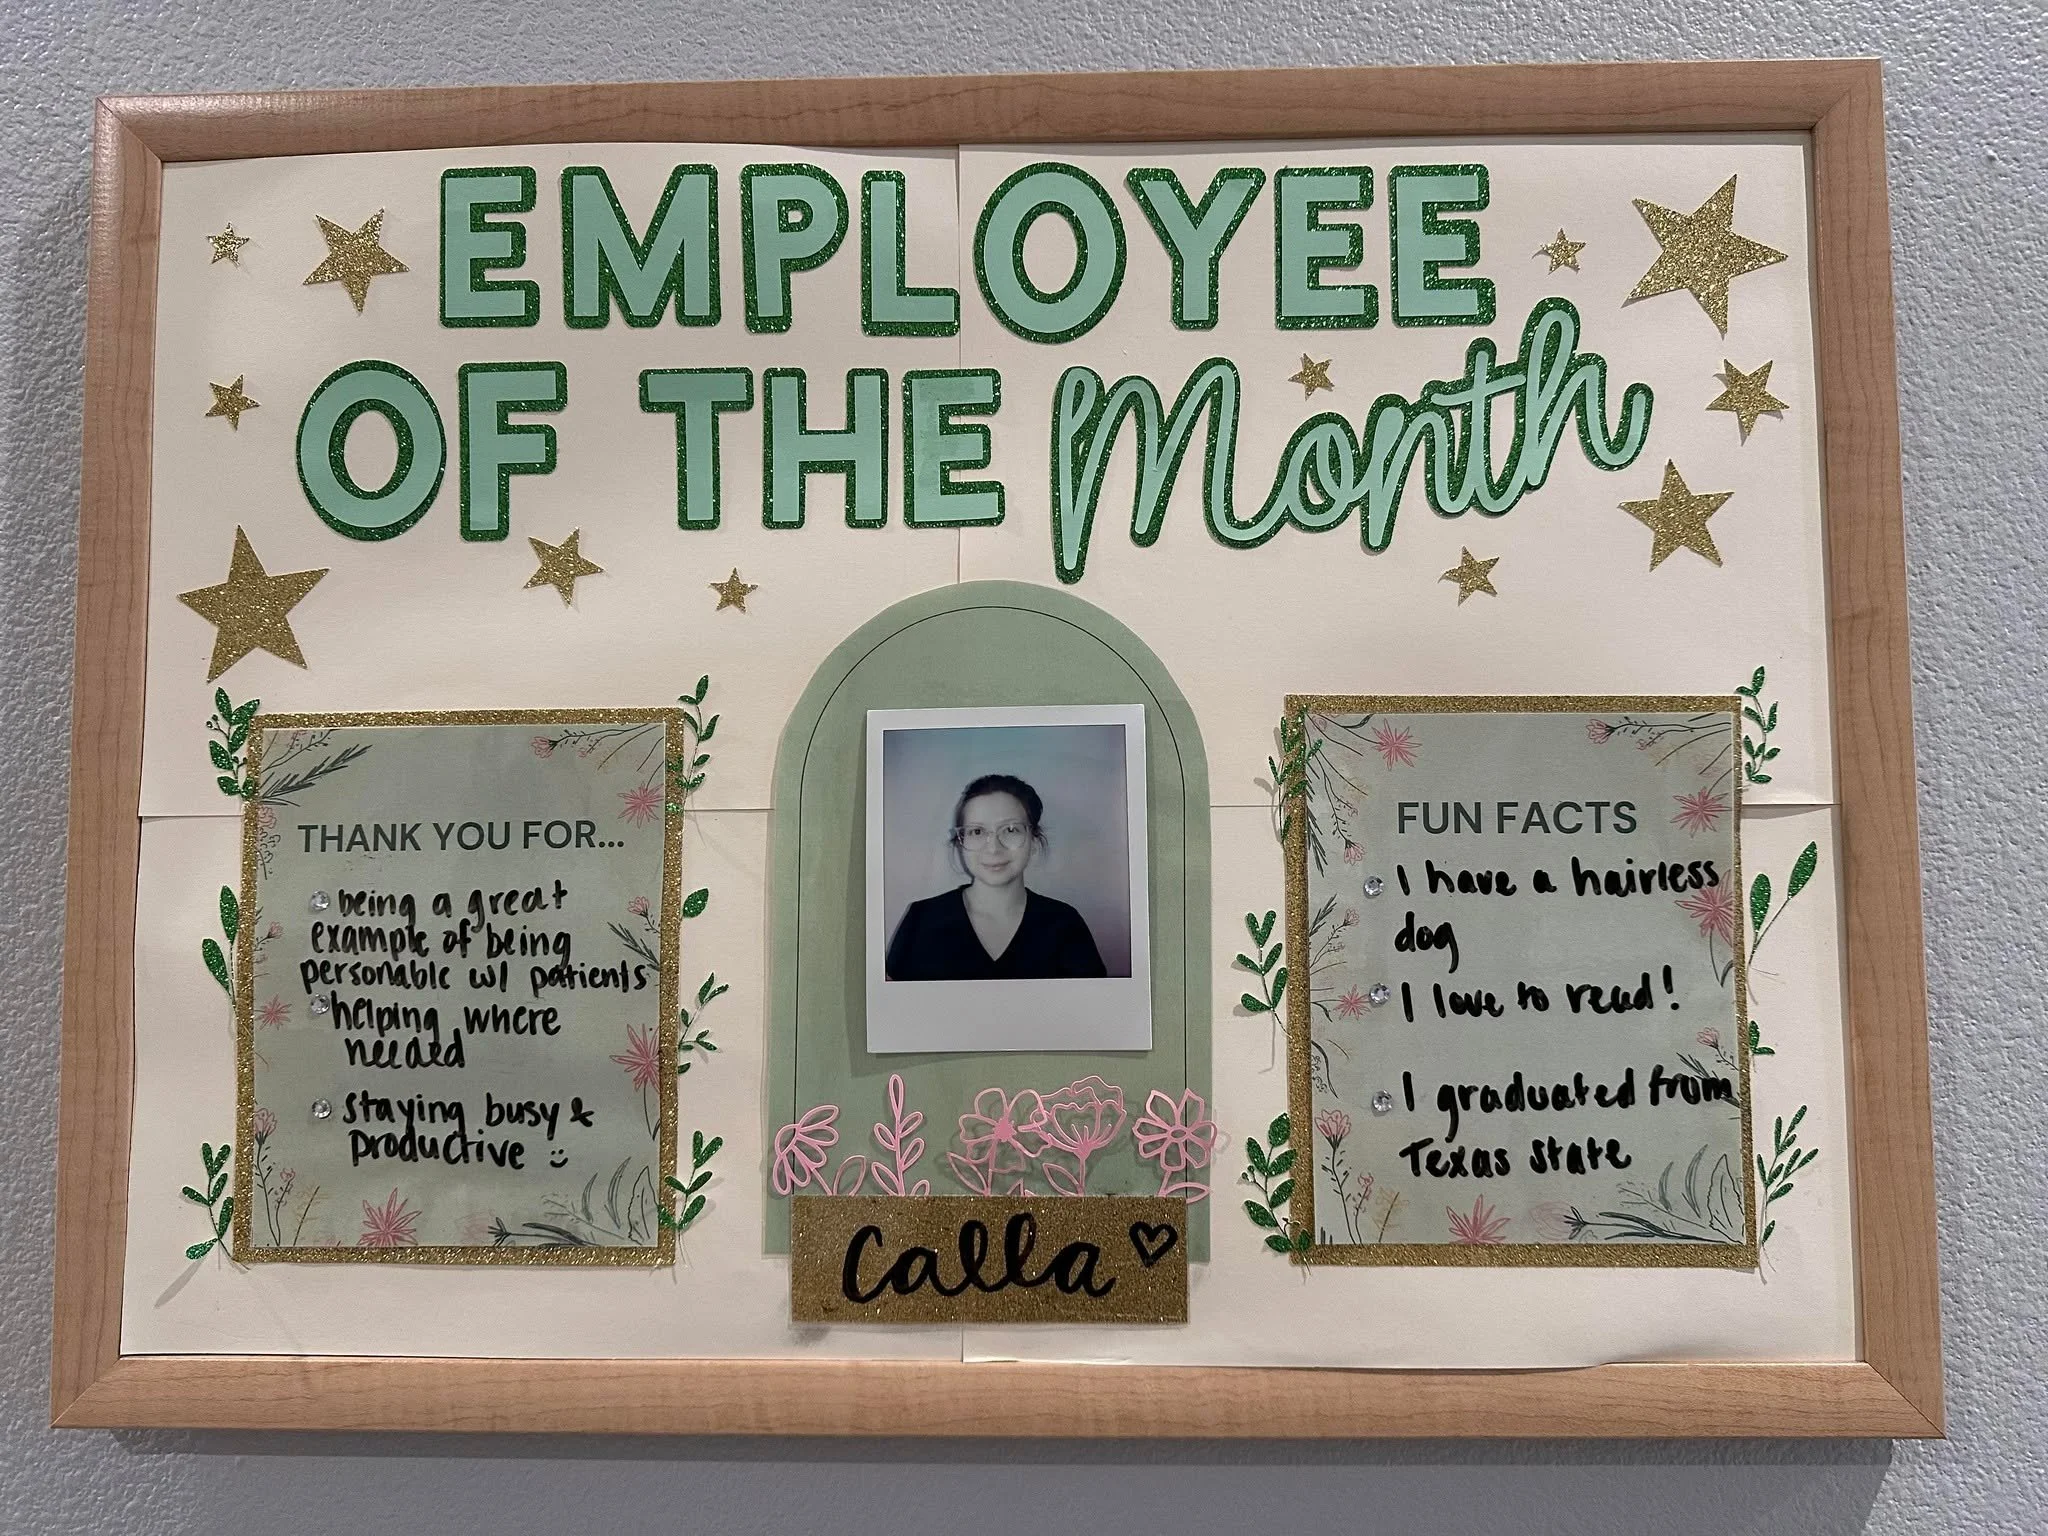 EMPLOYEE
OF THE Month
THANK YOU FOR...
being a great
example of being
personable w/ patients
helping where
needed
staying busy &
productive :)
Calla ♡
FUN FACTS
I have a hairless
dog
I love to read!
I graduated from
Texas State